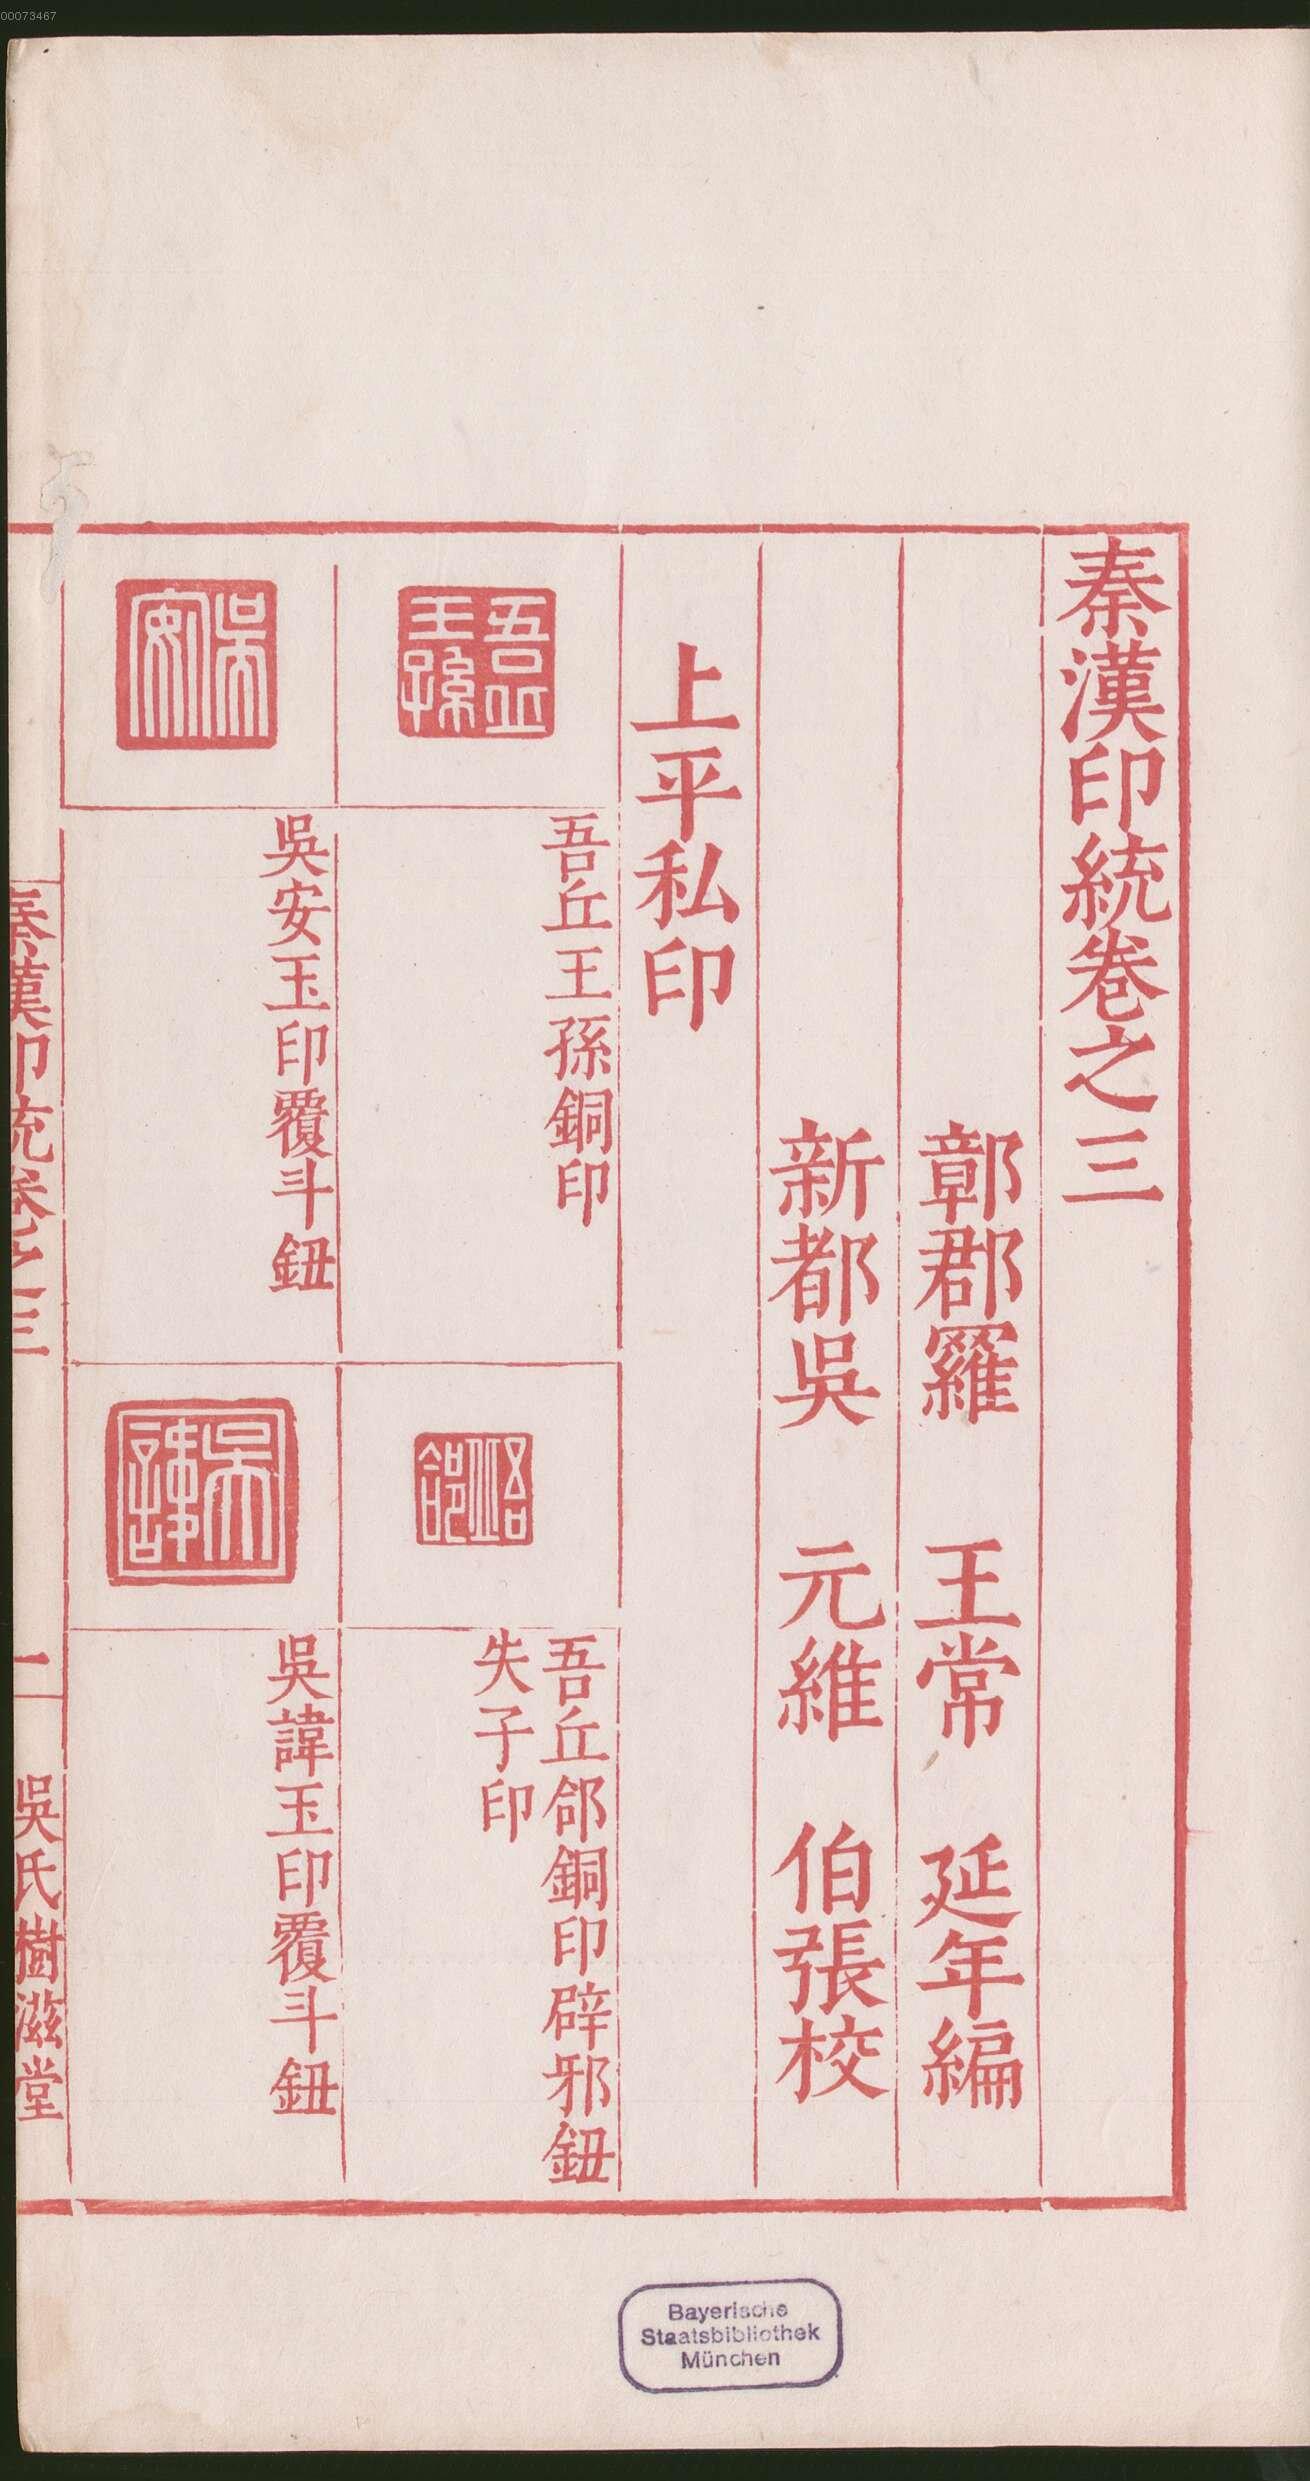 00073467
秦漢印統卷之三
鄣郡羅 王常 延年編
新都吳 元維 伯張校
上平私印
吾丘王孫
吾丘王孫銅印
吾丘郃
吾丘郃銅印辟邪鈕
失子印
吳安
吳安玉印覆斗鈕
吳諱
吳諱玉印覆斗鈕
秦漢印統卷之三
二
吳氏樹滋堂
Bayerische
Staatsbibliothek
München